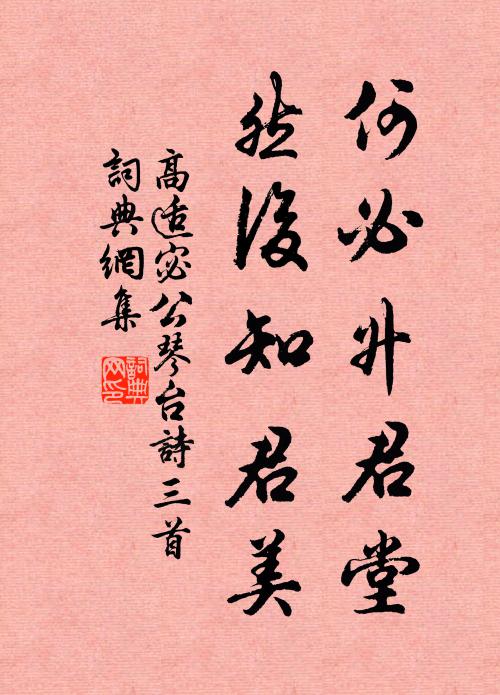 何必升君堂
然後知君美
高适宓公琴台詩三首
詞典網集
詞典網印